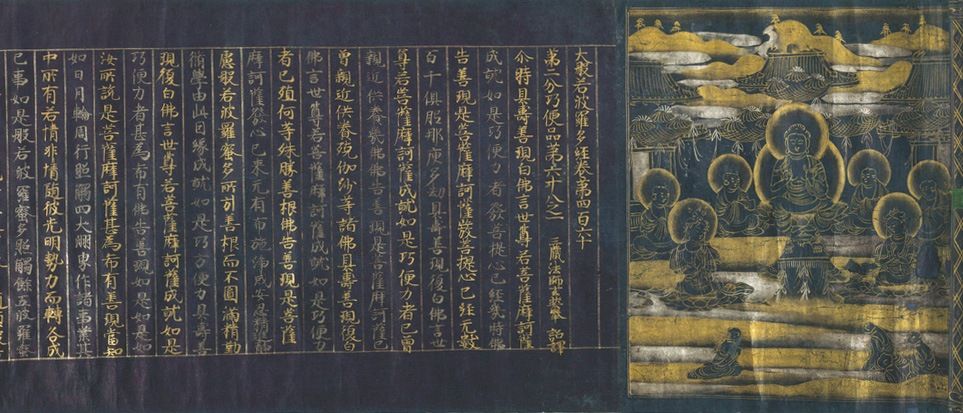 大般若波羅多經卷第四百六十
第二分巧便品第六十八之一 三藏法師玄奘奉 詔譯
尒時具壽善現白佛言世尊若菩薩摩訶薩
成就如是巧便力者發菩提心已經幾時佛
告善現是菩薩摩訶薩發菩提心已經无數
百千俱胝那庾多劫具壽善現復白佛言世
尊若菩薩摩訶薩成就如是巧便力者已曾
親近供養幾佛佛告善現是菩薩摩訶薩已
曾親近供養殑伽沙等諸佛具壽善現復白
佛言世尊若菩薩摩訶薩成就如是巧便力
者已殖何等殊勝善根佛告善現是菩薩
摩訶薩發心已來无有布施淨戒安忍精進靜
慮般若波羅蜜多所引善根而不圓滿精勤
脩學由此因緣成就如是巧方便力具壽善
現復白佛言世尊若菩薩摩訶薩成就如是
巧便力者甚為希有佛告善現如是如是如
汝所說是菩薩摩訶薩甚為希有善現當知
如日月輪周行照觸四大洲界作諸事業其
中所有若情非情隨彼光明勢力而轉各成
已事如是般若波羅蜜多照觸餘五波羅蜜